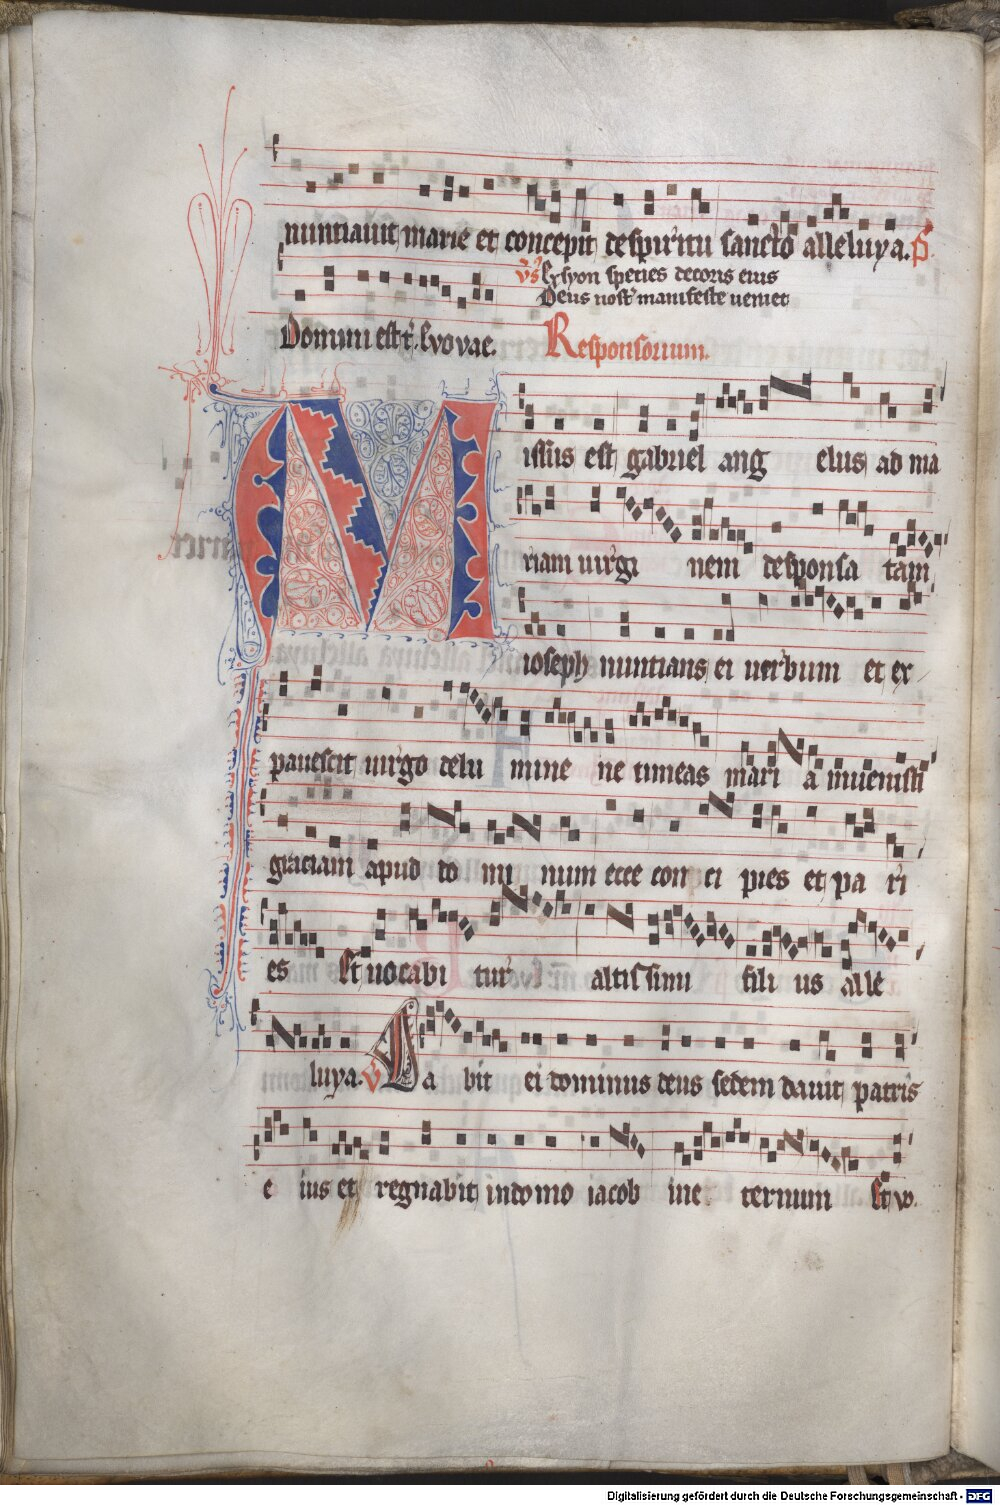 nuntiavit marie et concepit de spiritu sancto alleluya. P̄
Vs Ex syon species decoris eius
Deus nost manifeste veniet
Domini est t. Evovae. Responsorium.
Missus est gabriel ang elus ad ma
riam virgi nem desponsa tam
ioseph nuntians ei verbum et ex
pavescit virgo de lu mine ne timeas mari a invenisti
graciam apud do mi num ecce con ci pies et pa ri
es Et vocabi tur altissimi fili us alle
luya. V Da bit ei dominus deus sedem davit patris
e ius et regnabit in domo iacob ine ternum Et vo.
Digitalisierung gefördert durch die Deutsche Forschungsgemeinschaft - DFG